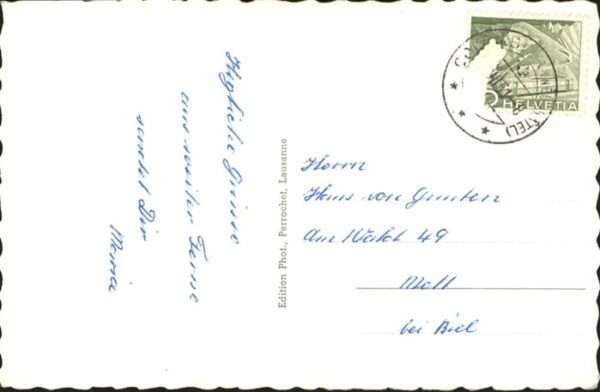 Herzliche Grüsse
aus weiter Ferne
sendet Dir
Maria
Edition Phot., Perrochet, Lausanne
HELVETIA
TEL)
Herrn
Hans von Gunten
Am Wald 49
bei Biel